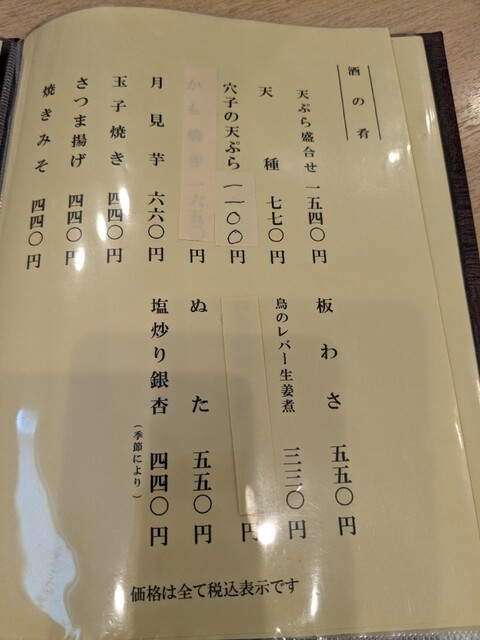 酒の肴
天ぷら盛合せ 一五四〇円
天種 七七〇円
穴子の天ぷら 一一〇〇円
かも焼き 一六五〇円
月見芋 六六〇円
玉子焼き 四四〇円
さつま揚げ 四四〇円
焼きみそ 四四〇円
板わさ 五五〇円
鳥のレバー生姜煮 三三〇円
円
ぬた 五五〇円
塩炒り銀杏 四四〇円
(季節により)
価格は全て税込表示です